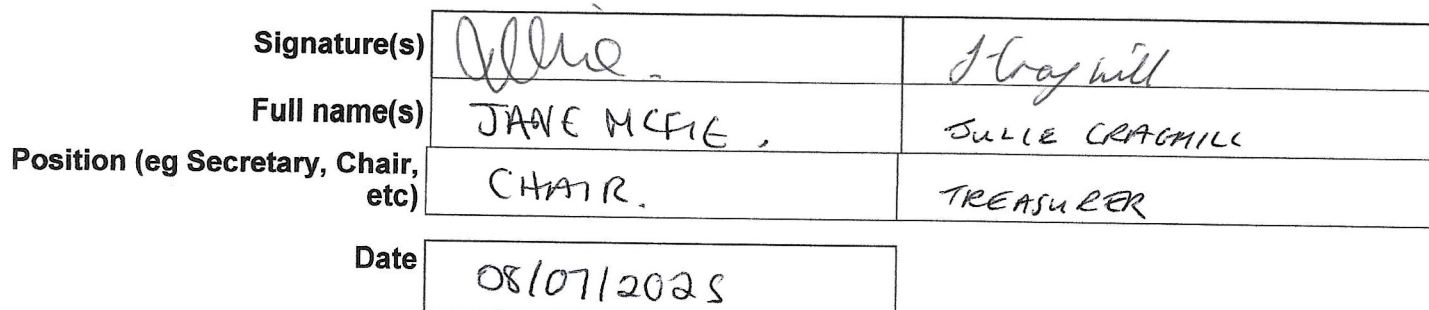 Signature(s) J Craghill
Full name(s) JANE MCFIE, JULIE CRAGHILL
Position (eg Secretary, Chair,
etc) CHAIR. TREASURER
Date 08/07/2025